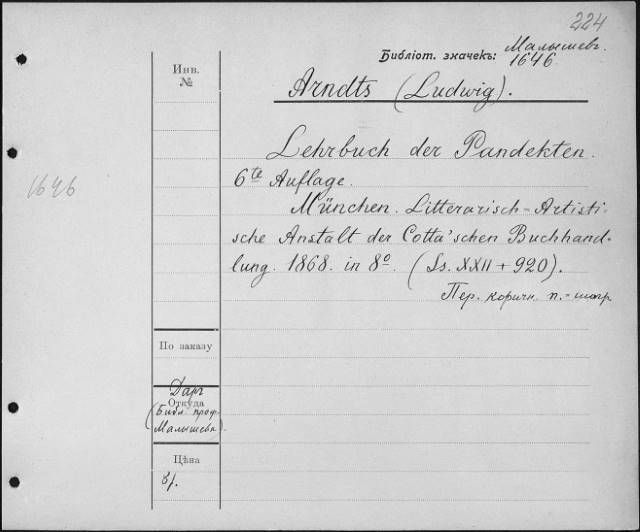 224
Библіот. значекъ: Малышев.
1646.
Инв.
№
Arndts (Ludwig).
Lehrbuch der Pandekten.
6te Auflage.
1646
München. Litterarisch-Artisti-
sche Anstalt der Cotta'schen Buchhand-
lung. 1868. in 8º. (Ss. XXII + 920).
Пер. коричн. п.-шагр
По заказу
Даръ
Откуда
(Библ. проф.
Малышева).
Цѣна